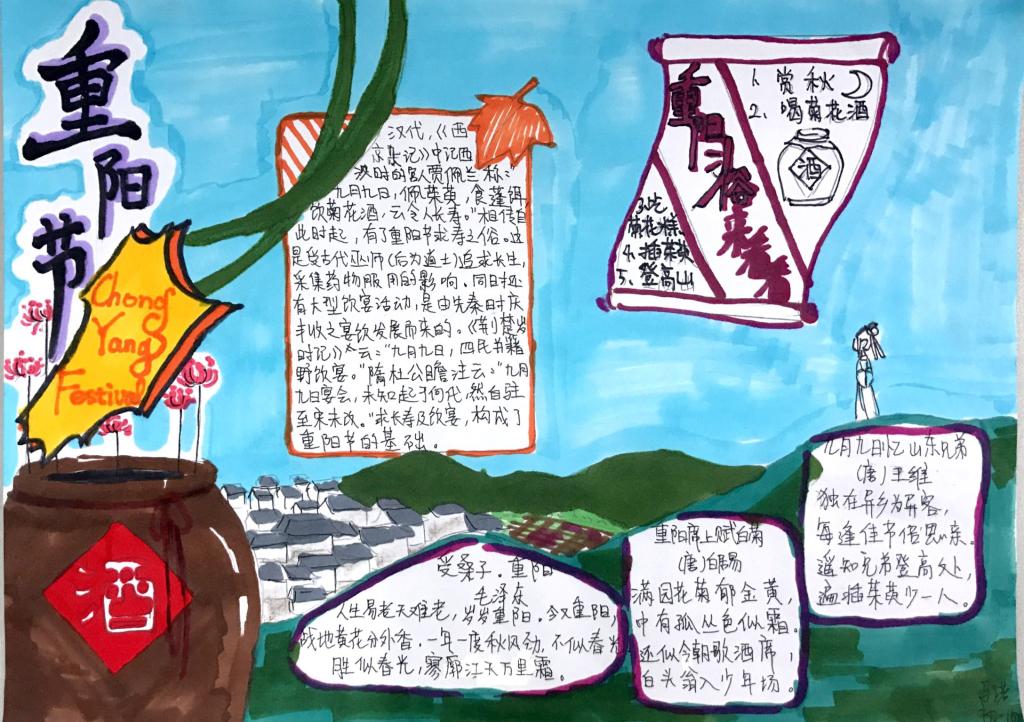 重阳节
Chong
Yang
Festival
汉代，《西
京杂记》中记西
汉时的宫人贾佩兰称："
九月九日，佩茱萸，食蓬饵，
饮菊花酒，云令人长寿。"相传自
此时起，有了重阳节求寿之俗。这
是受古代巫师（后为道士）追求长生，
采集药物服用的影响。同时还
有大型饮宴活动，是由先秦时庆
丰收之宴饮发展而来的。《荆楚岁
时记》云："九月九日，四民并籍
野饮宴。"隋杜公瞻注云："九月
九日宴会，未知起于何代，然自驻
至宋未改。"求长寿及饮宴，构成了
重阳节的基础。
重阳习俗来看看
1. 赏秋
2. 喝菊花酒
酒
3.吃
菊花糕
4.插茱萸
5、登高山
九月九日忆山东兄弟
（唐）王维
独在异乡为异客，
每逢佳节倍思亲。
遥知兄弟登高处，
遍插茱萸少一人。
重阳席上赋白菊
（唐）白居易
满园花菊郁金黄，
中有孤丛色似霜。
还似今朝歌酒席，
白头翁入少年场。
受桑子·重阳
毛泽东
人生易老天难老，岁岁重阳。今又重阳，
战地黄花分外香。一年一度秋风劲，不似春光
胜似春光，寥廓江天万里霜。
酒